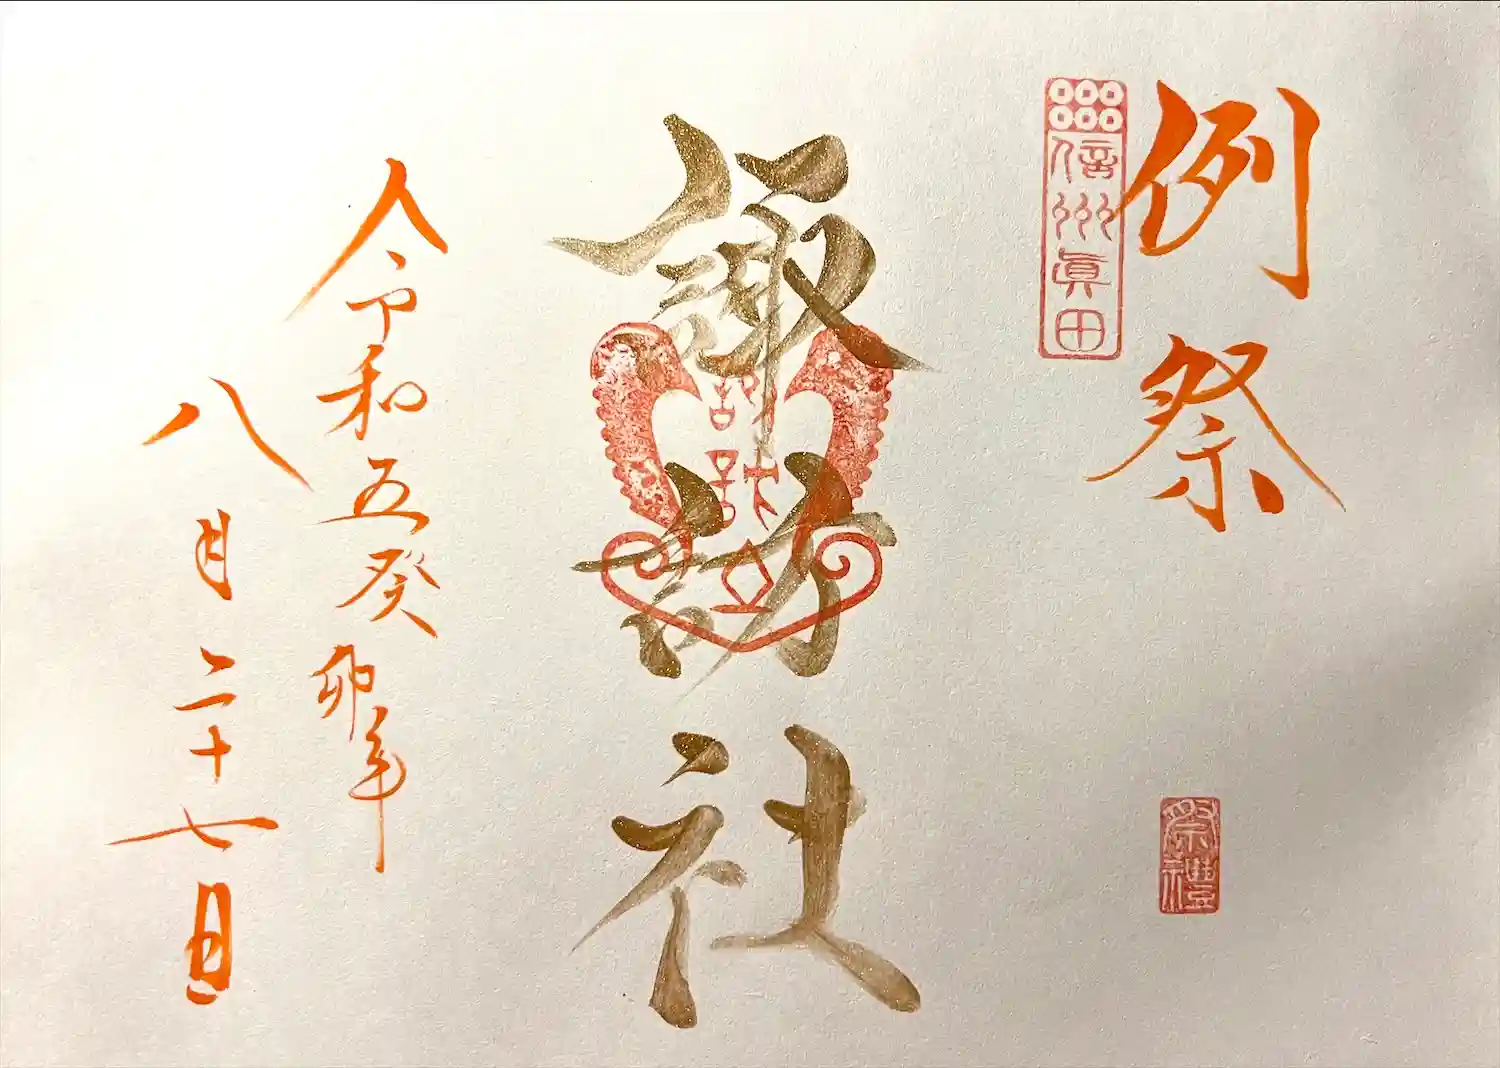 例祭
信州眞田
祭禮
諏訪社
令和五癸卯年
八月二十七日